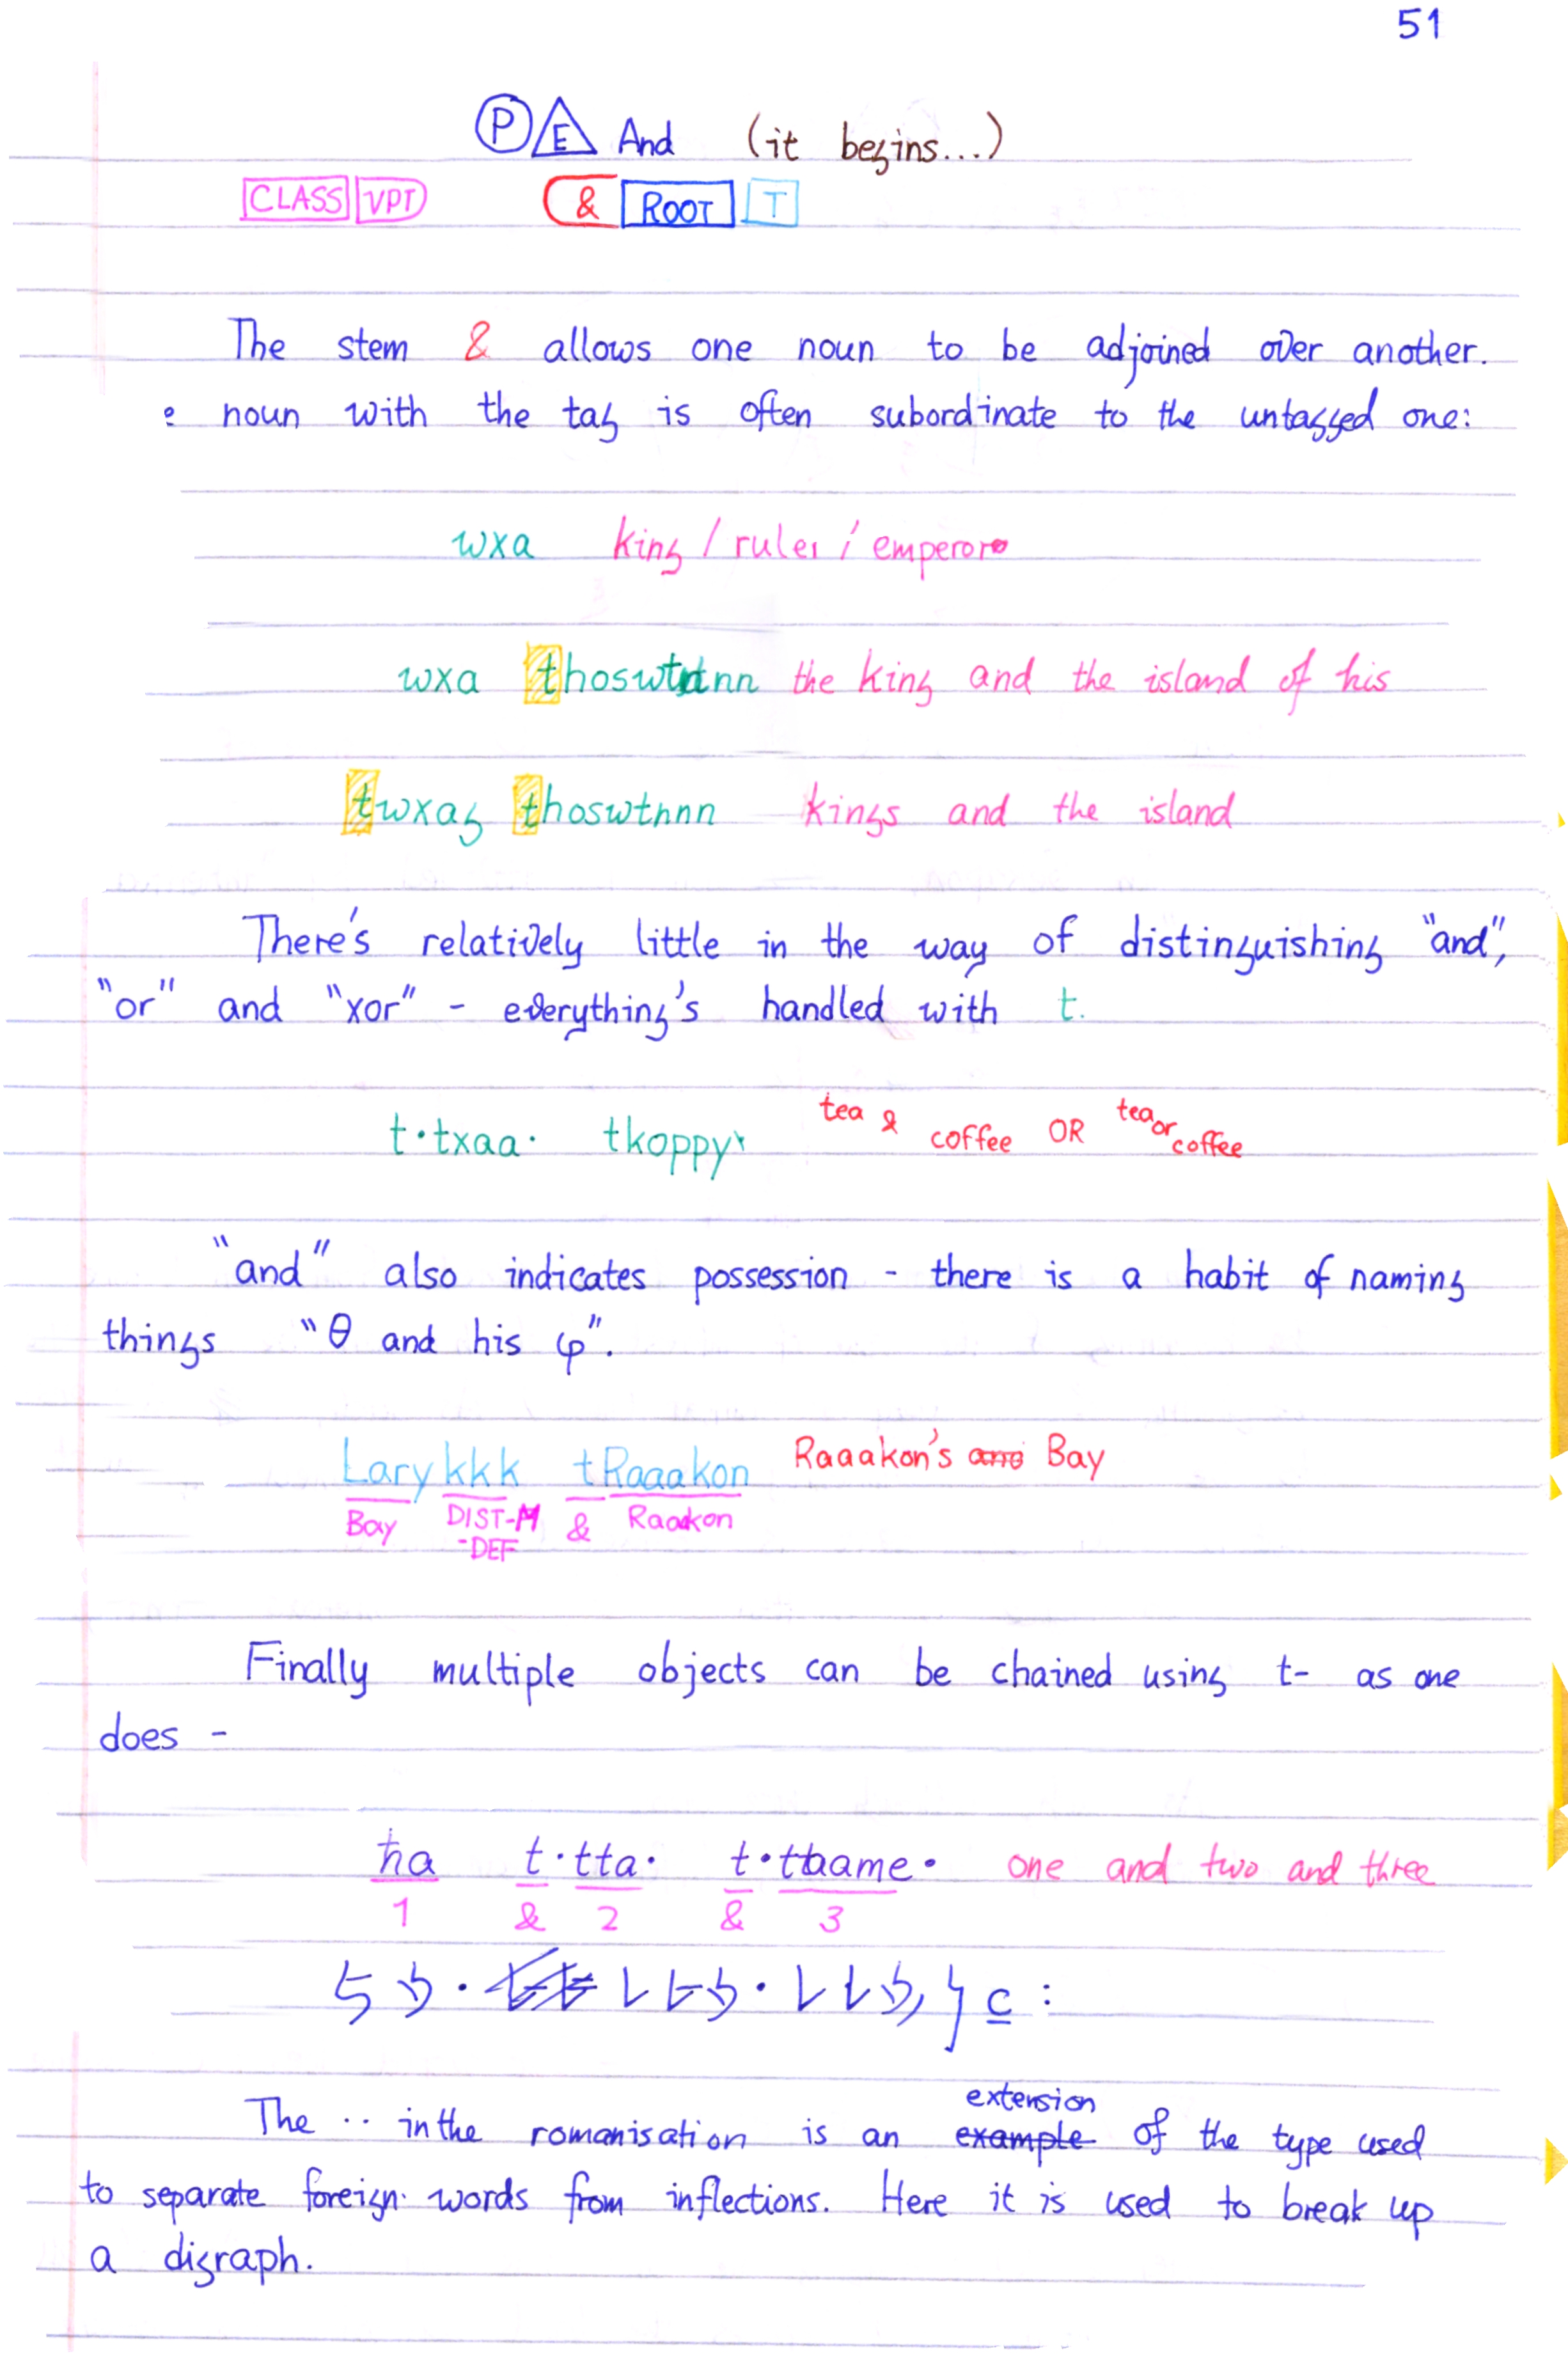 51
P E And (it begins...)
CLASS VPT & ROOT T
The stem & allows one noun to be adjoined over another.
e noun with the tag is often subordinate to the untagged one:
wxa king / ruler / emperor
wxa the king and the island of his
twxag thoswtnnn kings and the island
There's relatively little in the way of distinguishing "and",
"or" and "xor" - everything's handled with t.
t·txaa· tkoppy· tea & coffee OR tea or coffee
"and" also indicates possession - there is a habit of naming
things "θ and his φ".
Larykkk tRaaakon Raaakon's and Bay
Bay DIST-M & Raaakon
-DEF
Finally multiple objects can be chained using t- as one
does -
ħa t·tta· t·tŧaame· one and two and three
1 & 2 & 3
The ·· in the romanisation is an example extension of the type used
to separate foreign words from inflections. Here it is used to break up
a digraph.